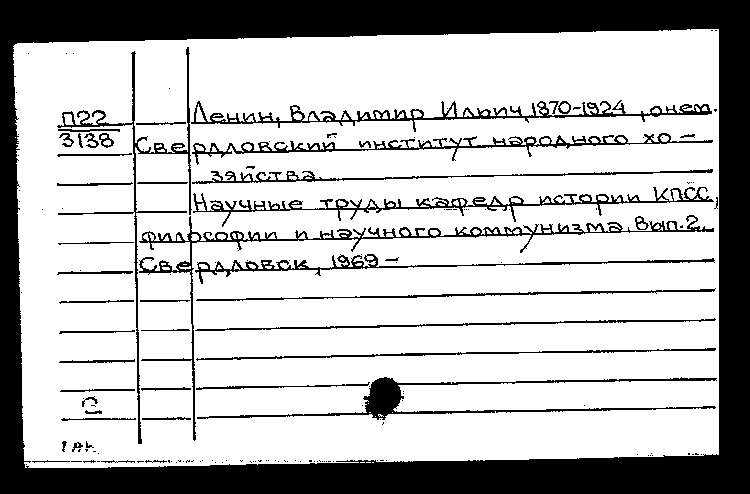 П22
3138
Ленин, Владимир Ильич, 1870-1924, о нем.
Свердловский институт народного хо-
зяйства.
Научные труды кафедр истории КПСС,
философии и научного коммунизма. Вып. 2.
Свердловск, 1969-